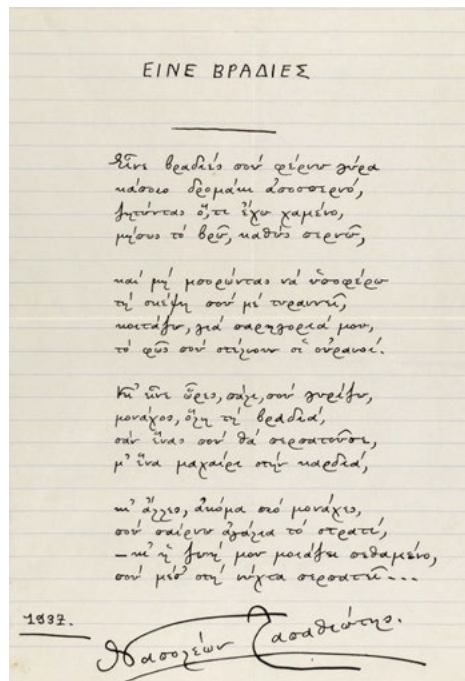 ΕΙΝΕ ΒΡΑΔΙΕΣ
Εἶνε βραδιές πού φέρνω γύρα
κάποιο δρομάκι ἀποσπερνό,
ζητώντας ὅ,τι ἔχω χαμένο,
μήπως τό βρῶ, καθώς περνῶ,
καί μή μπορώντας νά ὑποφέρω
τή σκέψη πού μέ τυραννεῖ,
κοιτάζω, γιά παρηγοριά μου,
τό φῶς πού στέλνουν οἱ οὐρανοί.
Κι' εἶνε ὧρες, πάλι, πού γυρίζω,
μονάχος, ὅλη τή βραδιά,
σάν ἕνας πού θά περπατοῦσε,
μ' ἕνα μαχαίρι στήν καρδιά,
κι' ἄλλες, ἀκόμα πιό μονάχες,
πού παίρνω ἀγάλια τό στρατί,
– κι' ἡ ζωή μου μοιάζει πεθαμένο,
πού μέσ' στή νύχτα περπατεῖ...
1937.
Ναπολέων Λαπαθιώτης.